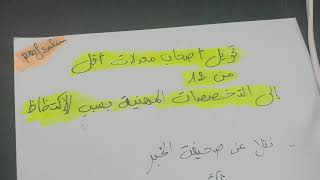 prof salim
تحويل أصحاب معدلات أقل
من 12
إلى التخصصات المهنية بسبب الإكتظاظ
نقلا عن صحيفة الخبر